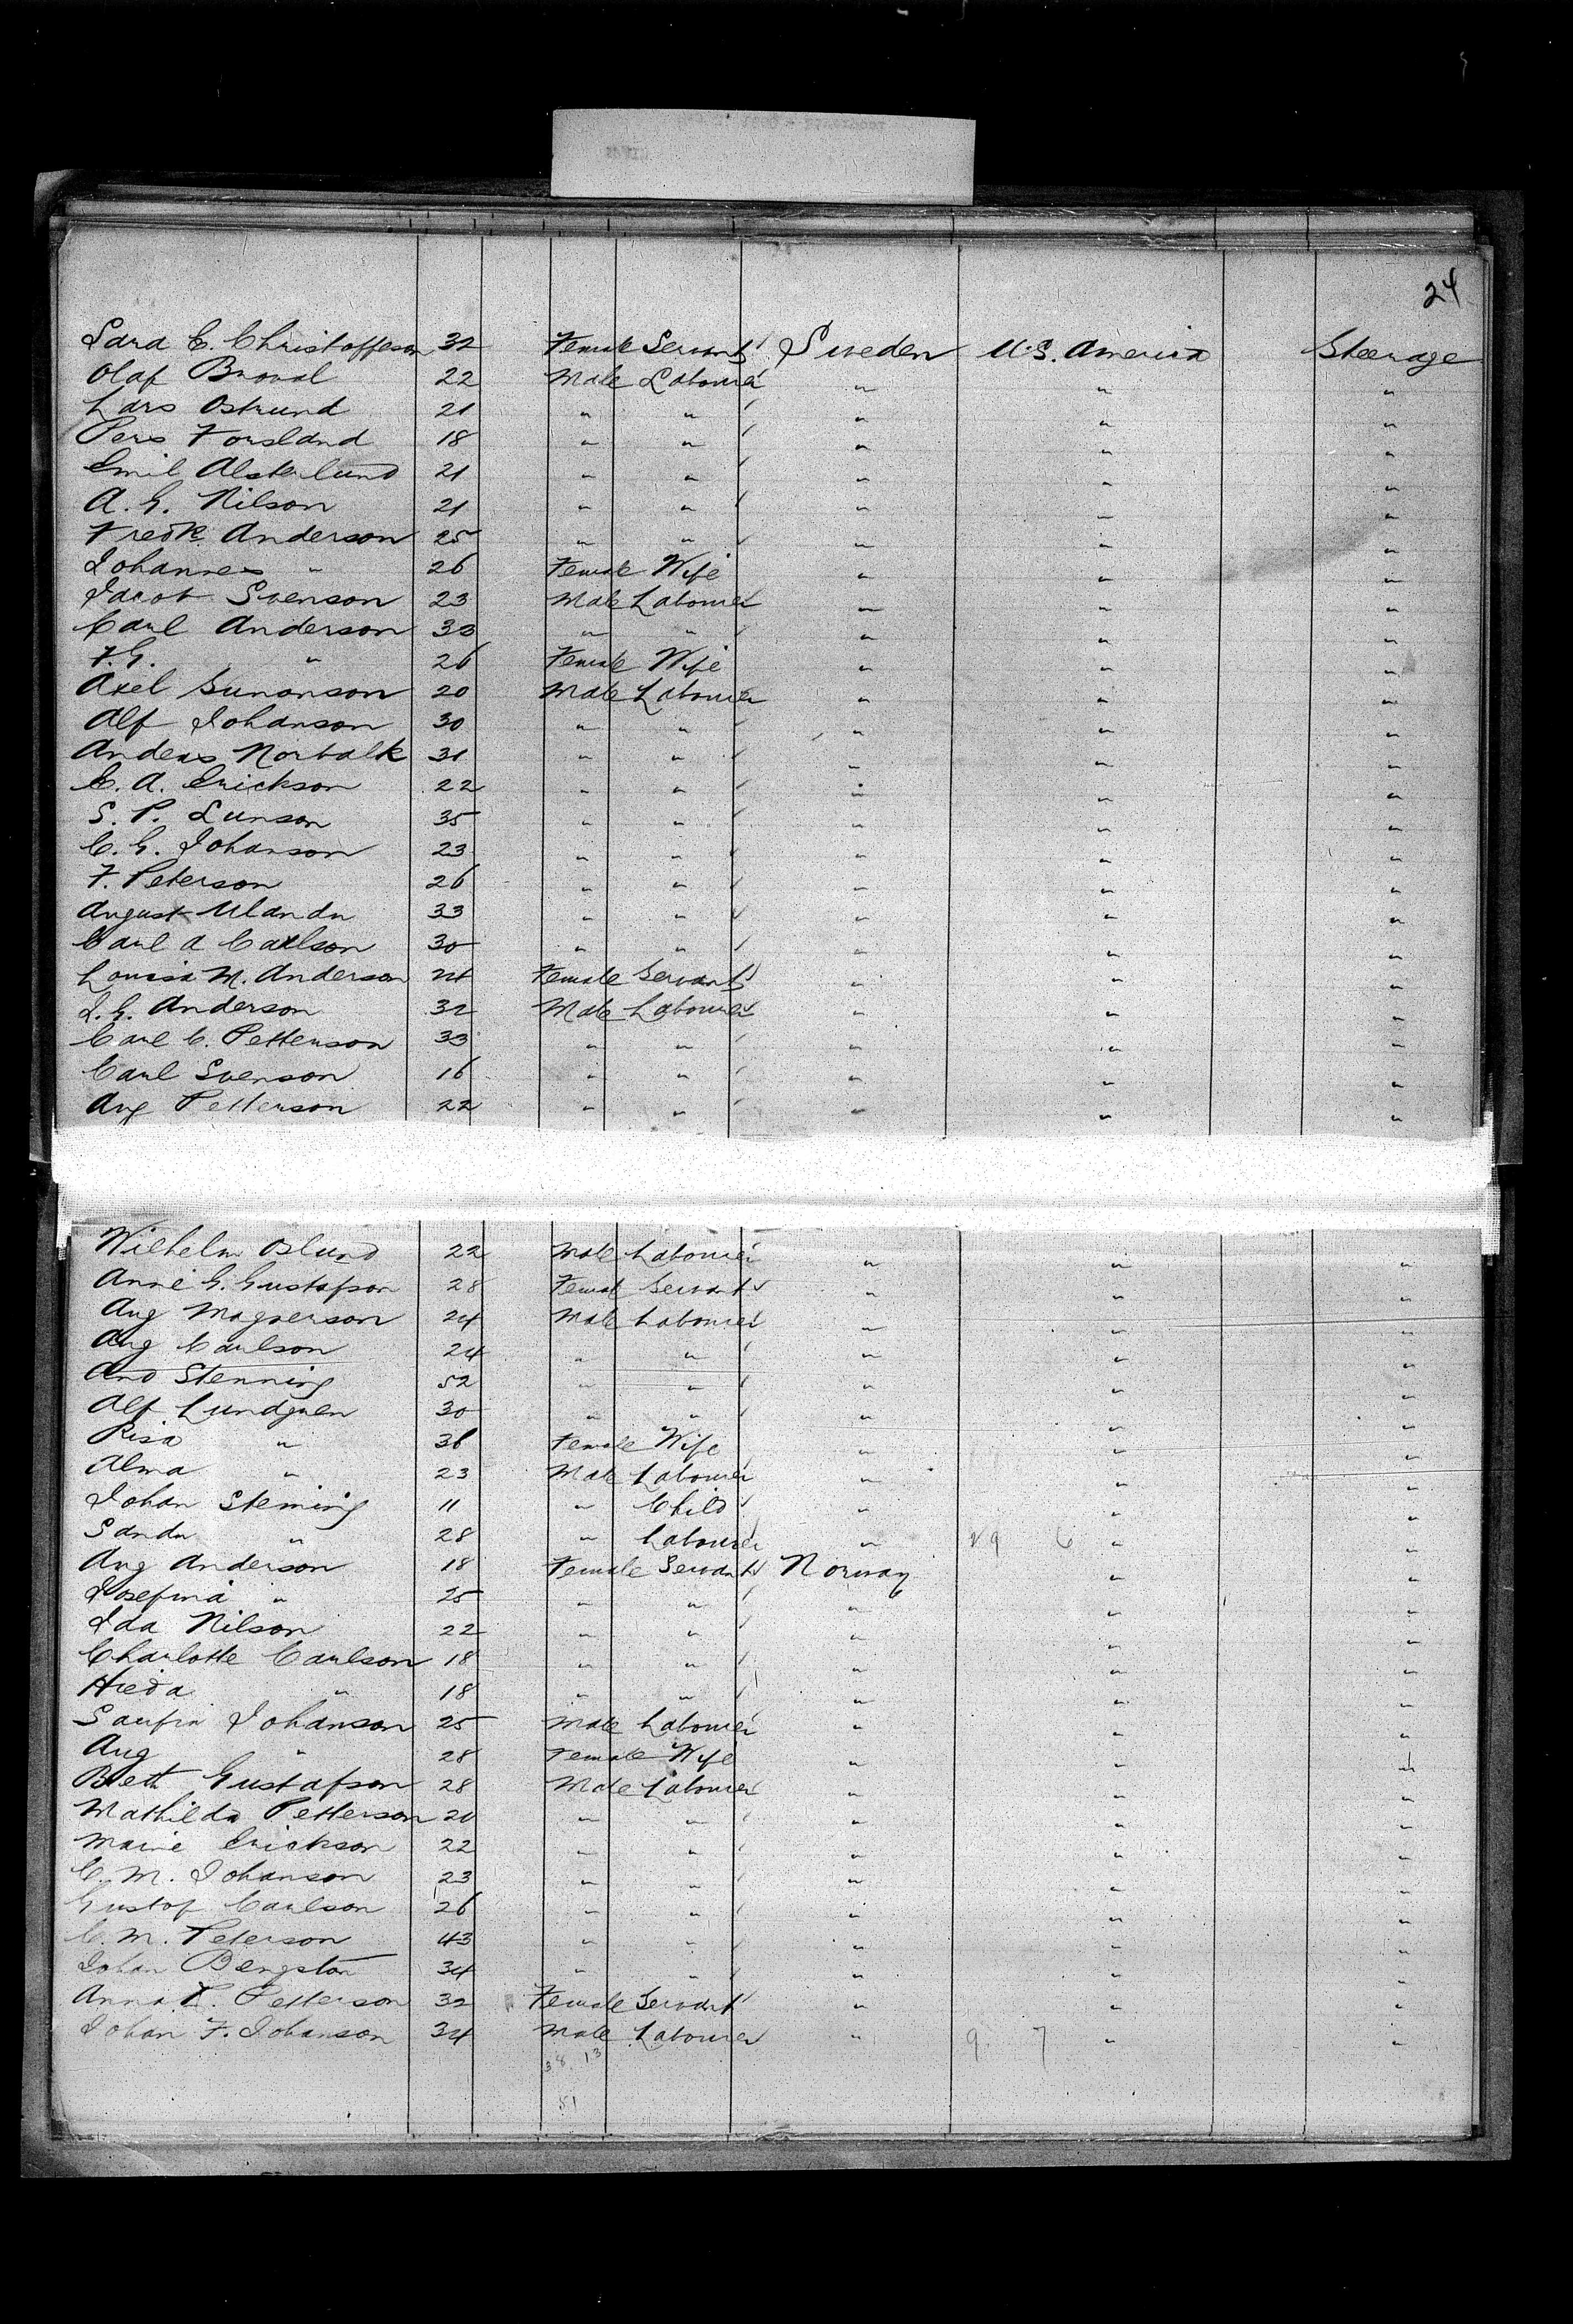 24
Sara C. Christoffeson 32 Female Servant Sweden U.S. America Steerage
Olaf 22 Male Labourer " " "
Lars Ostrund 21 " " " " "
Pers Forsland 18 " " " " "
Emil Alsterlund 21 " " " " "
A. G. Nilson 21 " " " " "
Fredk Anderson 25 " " " " "
Johannes " 26 Female Wife " " "
Jacob Svenson 23 Male Labourer " " "
Carl Anderson 33 " " " " "
F.G. " 26 Female Wife " " "
Axel Sunonson 20 Male Labourer " " "
Alf Johanson 30 " " " " "
Anders Norbalk 31 " " " " "
C. A. Erickson 22 " " " " "
S. P. Lunson 35 " " " " "
C. G. Johanson 23 " " " " "
F. Peterson 26 " " " " "
August 33 " " " " "
Carl A Carlson 30 " " " " "
Louisa M. Anderson 24 Female Servant " " "
J. G. Anderson 32 Male Labourer " " "
Carl C. Petterson 33 " " " " "
Carl Svenson 16 " " " " "
Aug Petterson 22 " " " " "
Wilhelm Oslund 22 Male Labourer " " "
Anne G. Gustafson 28 Female Servant " " "
Aug Magnerson 24 Male Labourer " " "
Aug Carlson 24 " " " " "
And Stenning 52 " " " " "
Alf Lundgren 30 " " " " "
Risa " 36 Female Wife " " "
Alma " 23 Male Labourer " " "
Johan Stening 11 " Child " " "
" 28 " Labourer " 29 6 " "
Aug Anderson 18 Female Servant Norway " "
Josefina " 25 " " " " "
Ida Nilson 22 " " " " "
Charlotte Carlson 18 " " " " "
Hieda " 18 " " " " "
Johanson 25 Male Labourer " " "
Aug " 28 Female Wife " " "
Gustafson 28 Male Labourer " " "
Mathilda Petterson 20 " " " " "
Marie Erickson 22 " " " " "
C. M. Johanson 23 " " " " "
Gustaf Carlson 26 " " " " "
C. M. Peterson 43 " " " " "
Johan Bengston 34 " " " " "
Anna L. Petterson 32 Female Servant " " "
Johan F. Johanson 34 Male Labourer " 9 7 " "
38 13
51